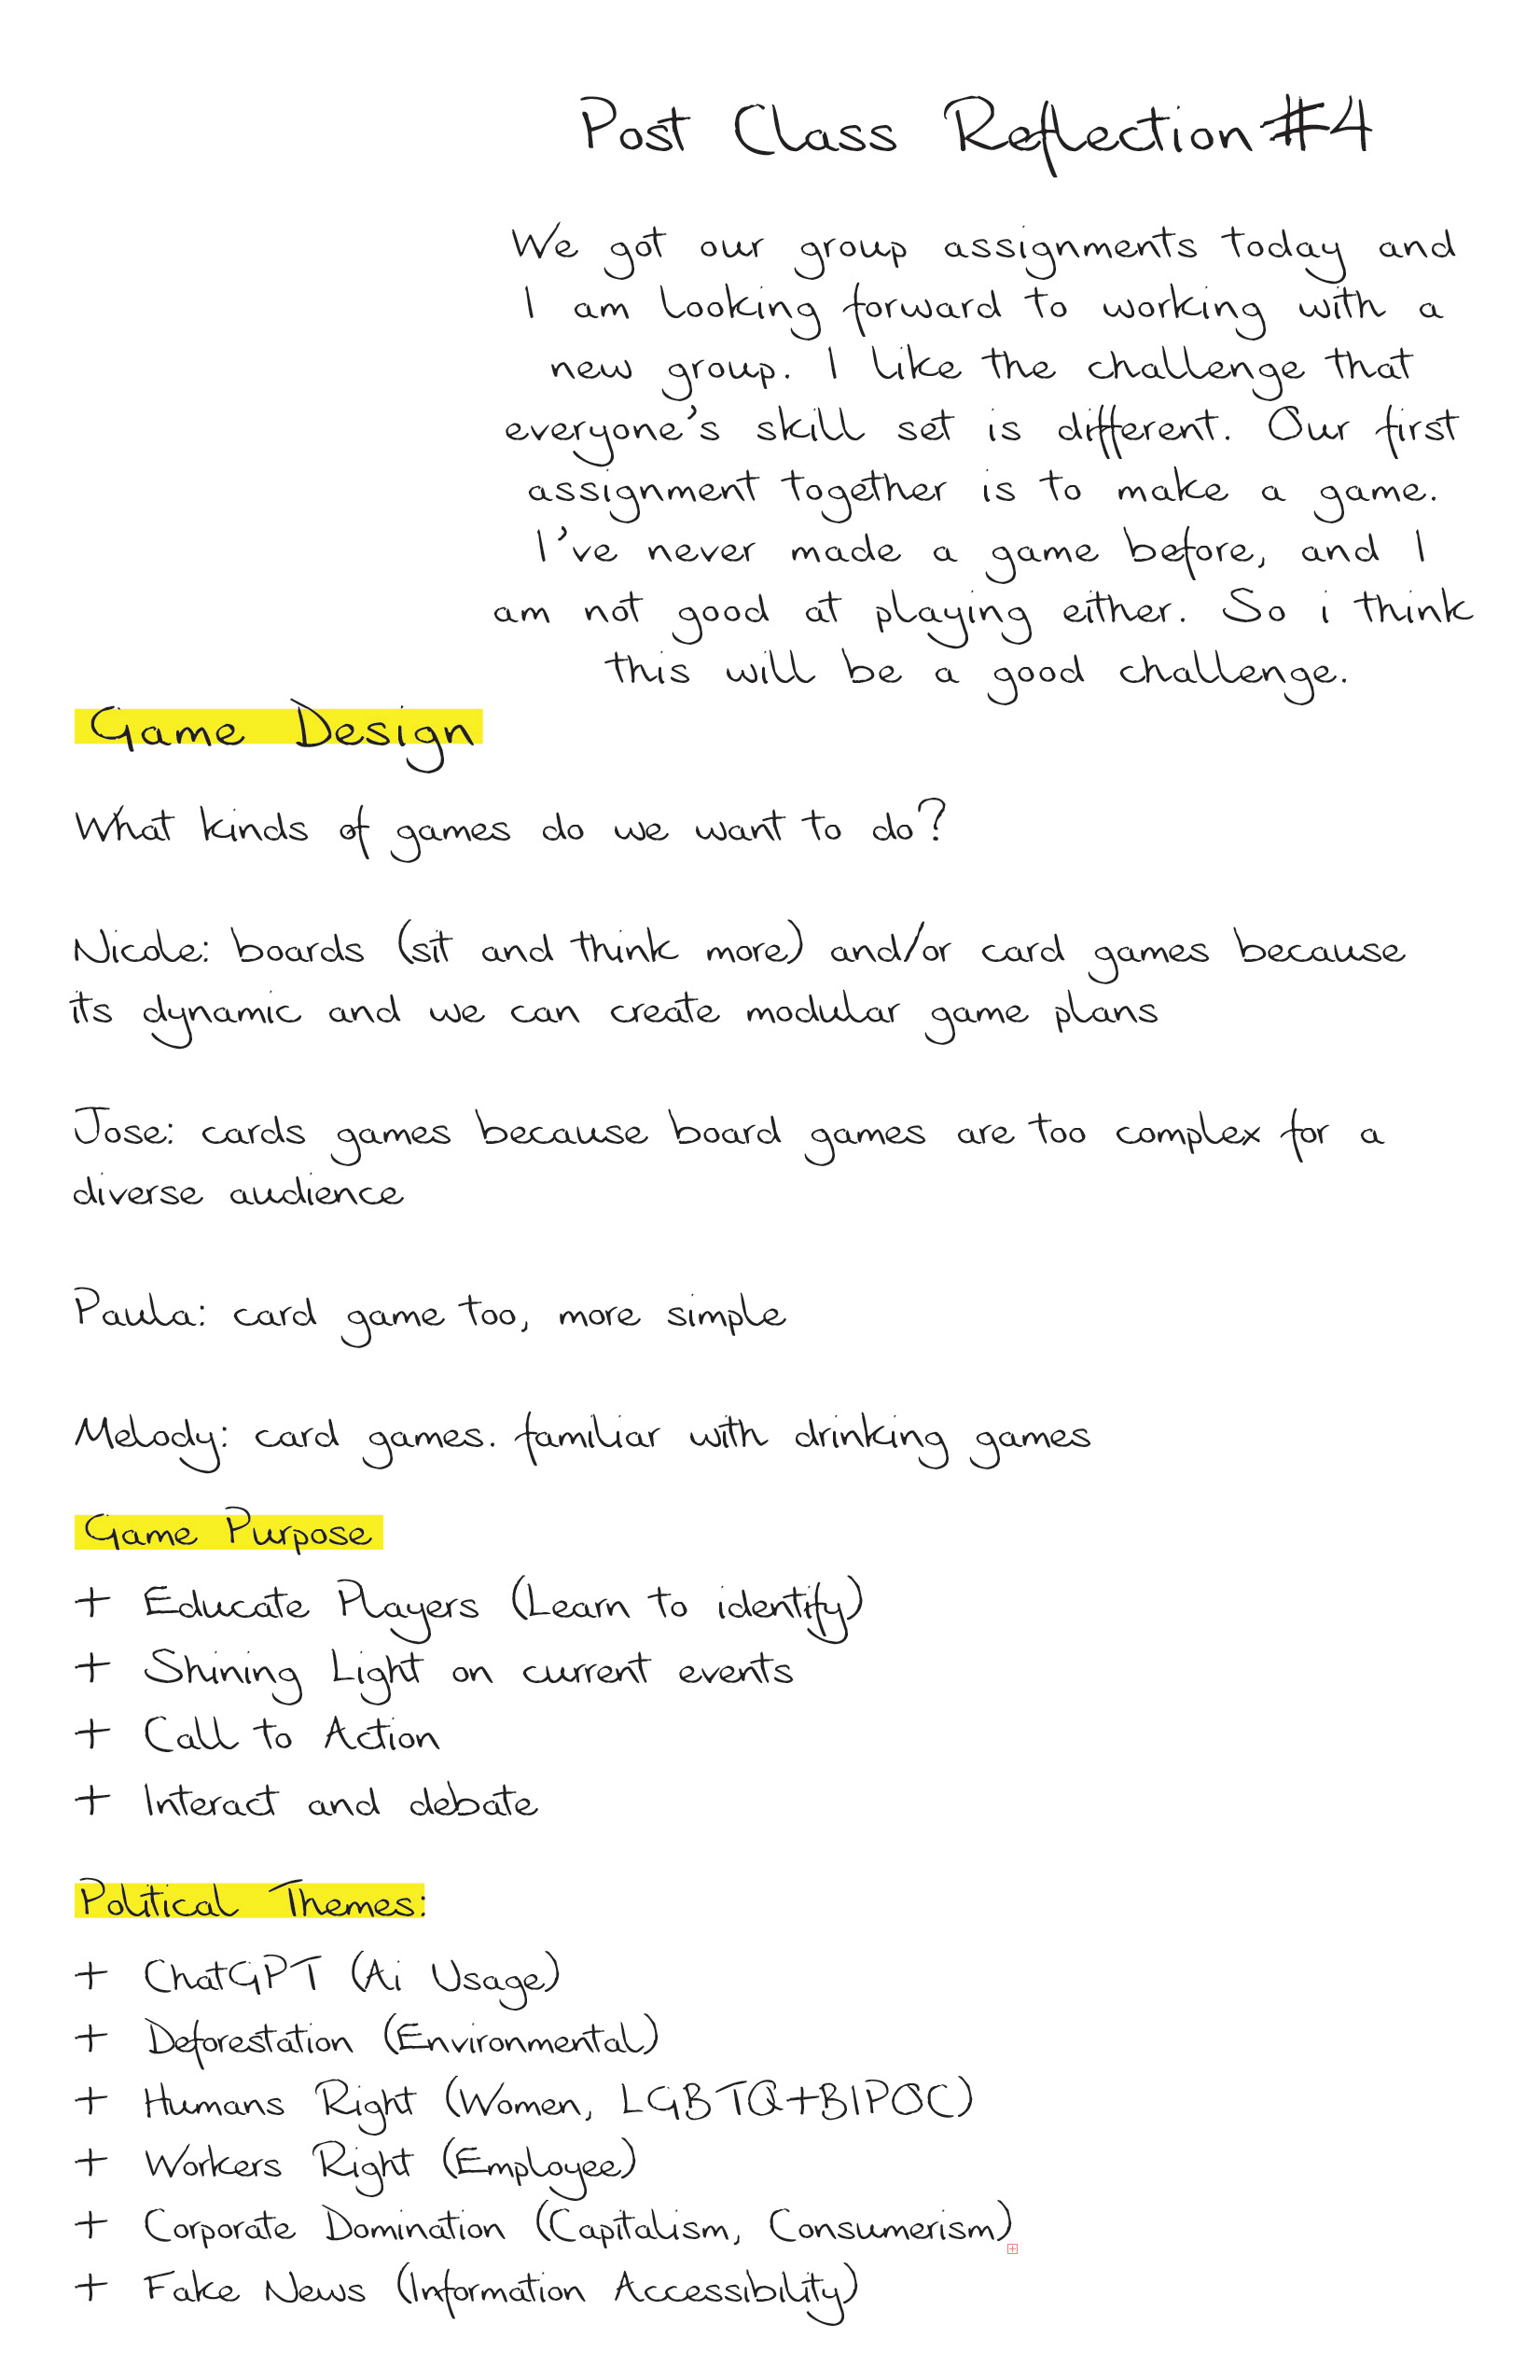 Post Class Reflection #4
We got our group assignments today and
I am looking forward to working with a
new group. I like the challenge that
everyone's skill set is different. Our first
assignment together is to make a game.
I've never made a game before, and I
am not good at playing either. So i think
this will be a good challenge.
Game Design
What kinds of games do we want to do?
Nicole: boards (sit and think more) and/or card games because
its dynamic and we can create modular game plans
Jose: cards games because board games are too complex for a
diverse audience
Paula: card game too, more simple
Melody: card games. familiar with drinking games
Game Purpose
+ Educate Players (Learn to identify)
+ Shining Light on current events
+ Call to Action
+ Interact and debate
Political Themes:
+ ChatGPT (Ai Usage)
+ Deforestation (Environmental)
+ Humans Right (Women, LGBTQ+BIPOC)
+ Workers Right (Employee)
+ Corporate Domination (Capitalism, Consumerism)
+ Fake News (Information Accessibility)